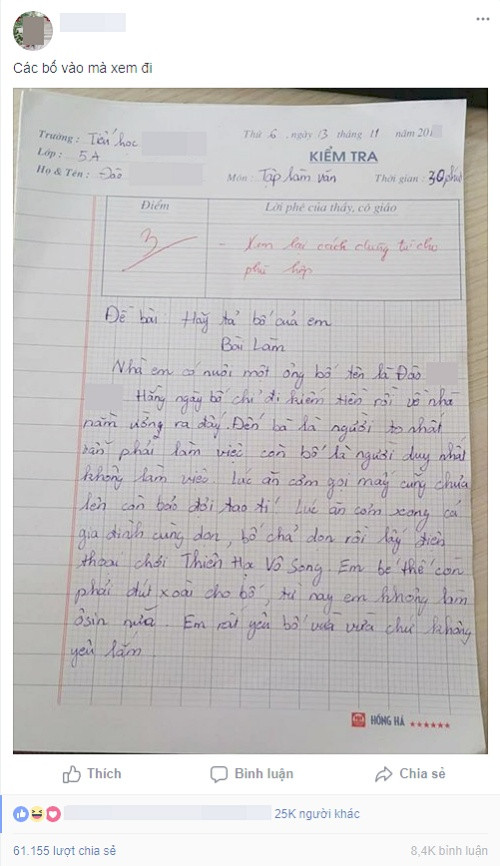 Các bố vào mà xem đi
Trường: Tiểu học
Thứ 6, ngày 13 tháng 11 năm 201
Lớp: 5A
KIỂM TRA
Họ & Tên: Đào
Môn: Tập làm văn
Thời gian: 30 phút
Điểm
Lời phê của thầy, cô giáo
3
- Xem lại cách dùng từ cho
phù hợp
Đề bài Hãy tả bố của em
Bài Làm
Nhà em có nuôi một ông bố tên là Đào
Hằng ngày bố chỉ đi kiếm tiền rồi về nhà
nằm uỗng ra đấy. Đến bà là người to nhất
vẫn phải làm việc còn bố là người duy nhất
không làm việc. Lúc ăn cơm gọi mấy cũng chưa
lên còn bảo đợi tao tí. Lúc ăn cơm xong cả
gia đình cùng dọn, bố chả dọn rồi lấy điện
thoại chơi Thiên Hạ Vô Song. Em bé thế còn
phải đút xoài cho bố, từ nay em không làm
ôsin nữa. Em rất yêu bố vừa vừa chứ không
yêu lắm
HỒNG HÀ
Thích
Bình luận
Chia sẻ
25K người khác
61.155 lượt chia sẻ
8,4K bình luận